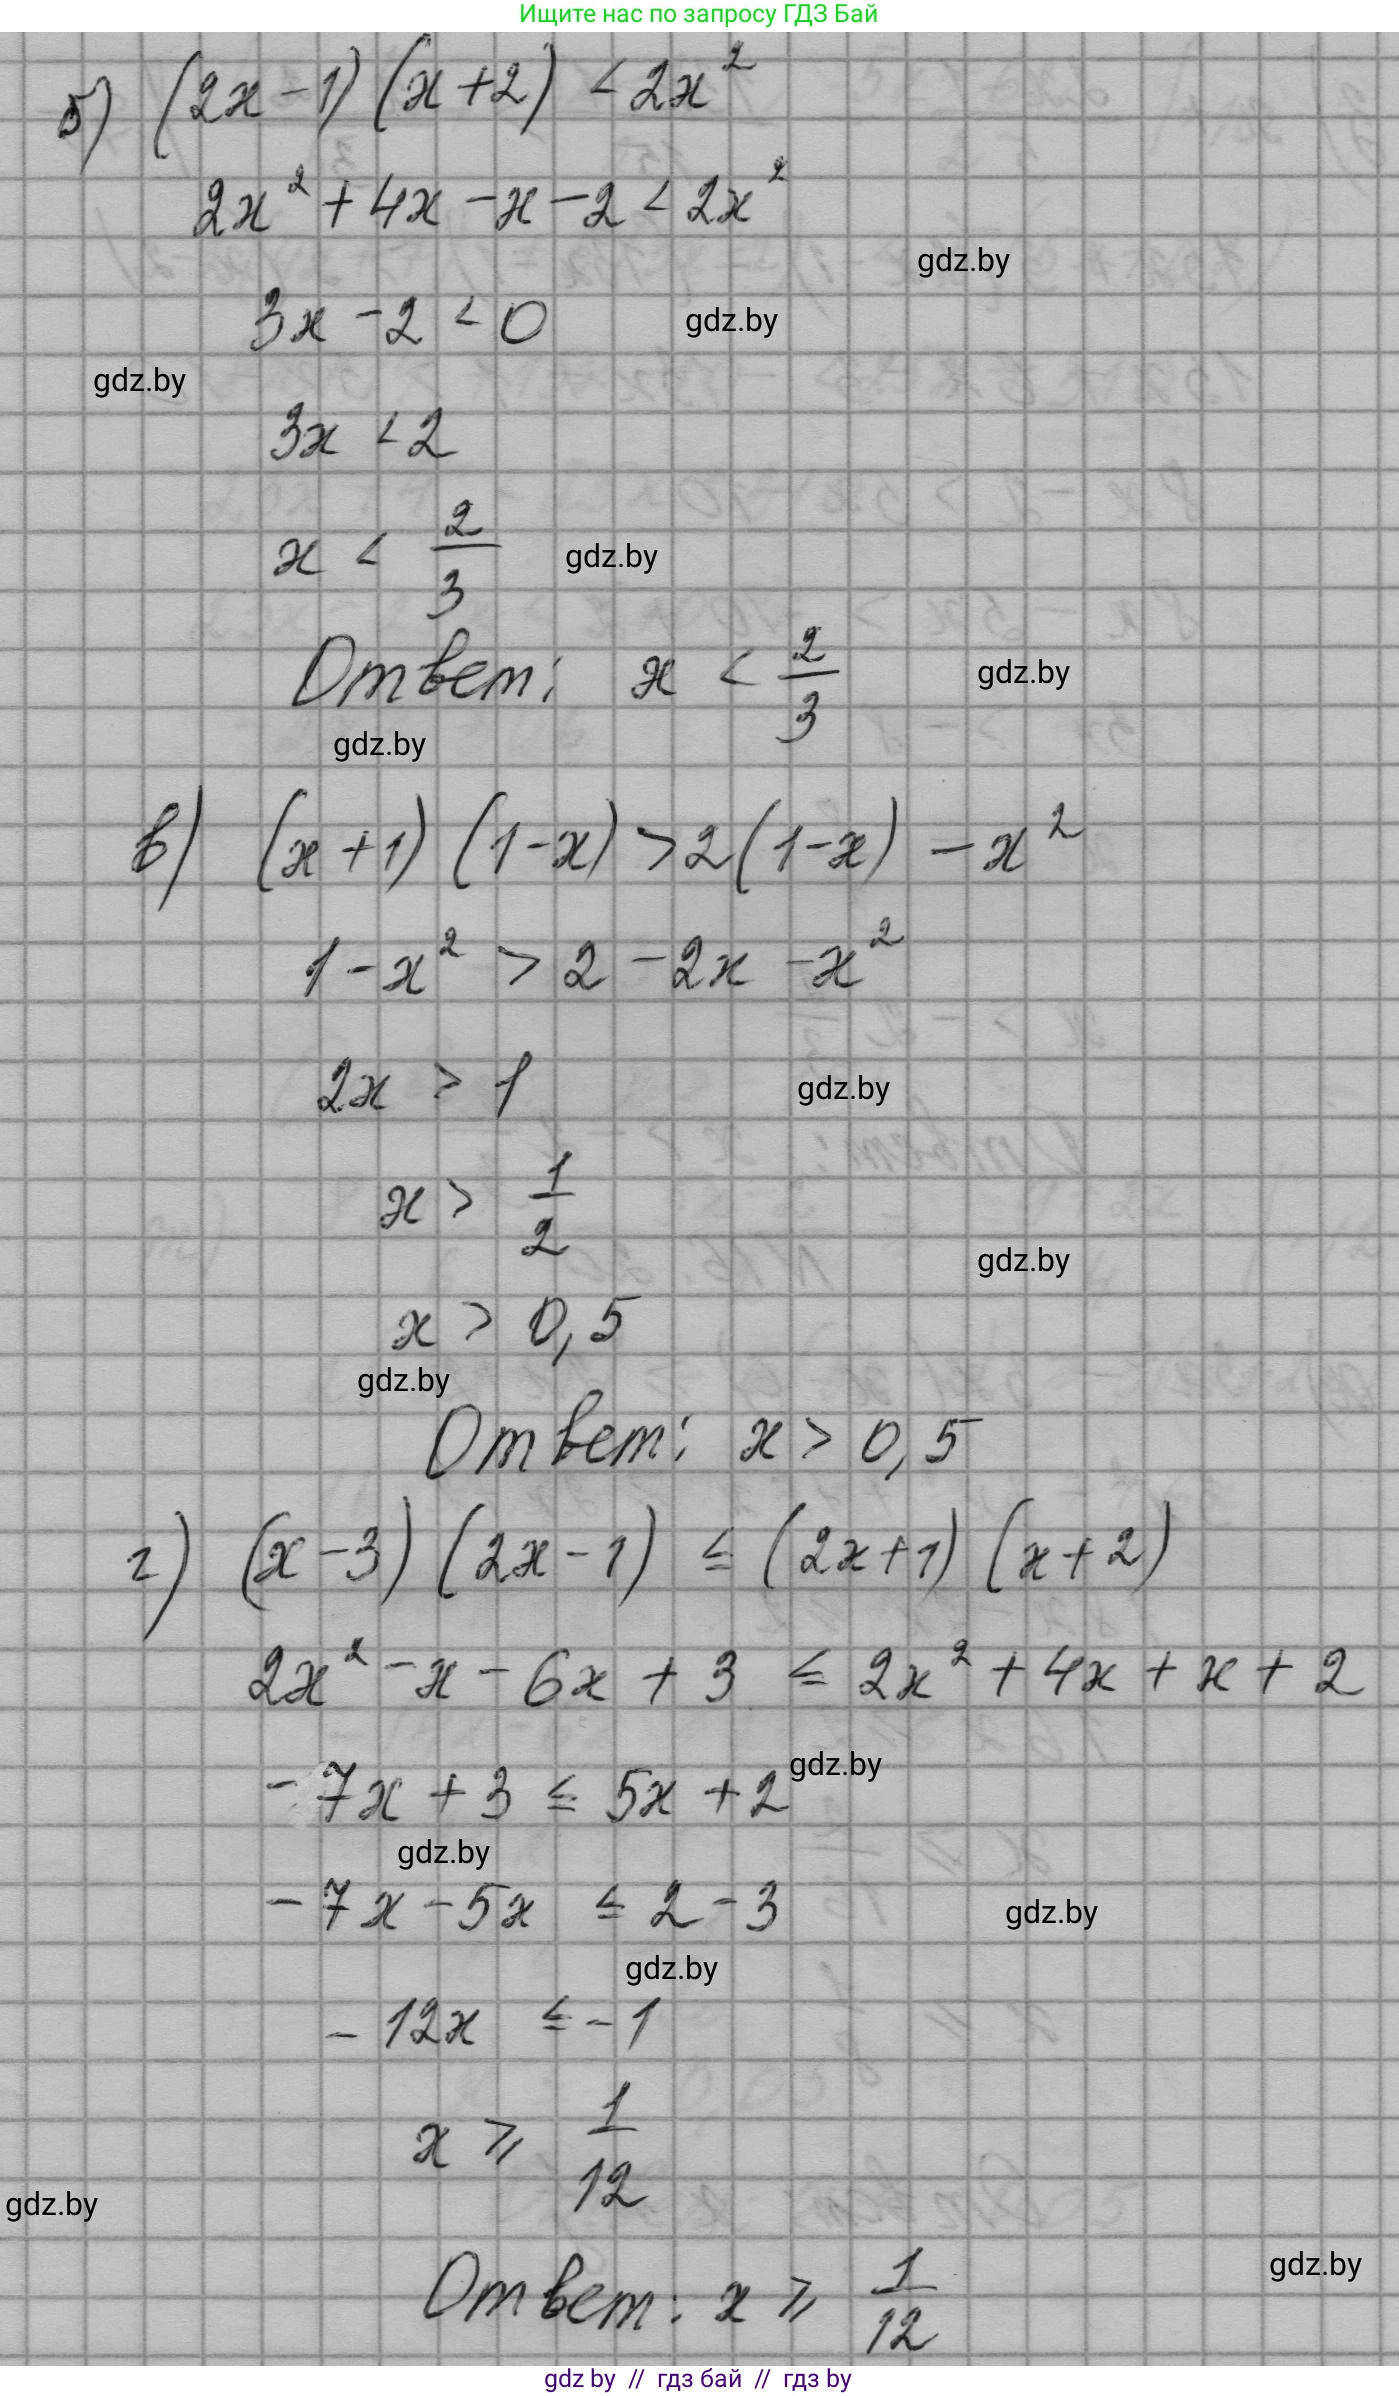 Ищите нас по запросу ГДЗ Бай
б) (2x - 1) (x + 2) < 2x²
2x² + 4x - x - 2 < 2x²
gdz.by
3x - 2 < 0
gdz.by
gdz.by
3x < 2
x < 2/3
gdz.by
Ответ: x < 2/3
gdz.by
gdz.by
в) (x + 1) (1 - x) > 2 (1 - x) - x²
1 - x² > 2 - 2x - x²
2x > 1
gdz.by
x > 1/2
gdz.by
x > 0,5
gdz.by
Ответ: x > 0,5
г) (x - 3) (2x - 1) ≤ (2x + 1) (x + 2)
2x² - x - 6x + 3 ≤ 2x² + 4x + x + 2
gdz.by
- 7x + 3 ≤ 5x + 2
gdz.by
- 7x - 5x ≤ 2 - 3
gdz.by
gdz.by
- 12x ≤ - 1
x ⩾ 1/12
gdz.by
gdz.by
Ответ: x ⩾ 1/12
gdz by // гдз бай // гдз by